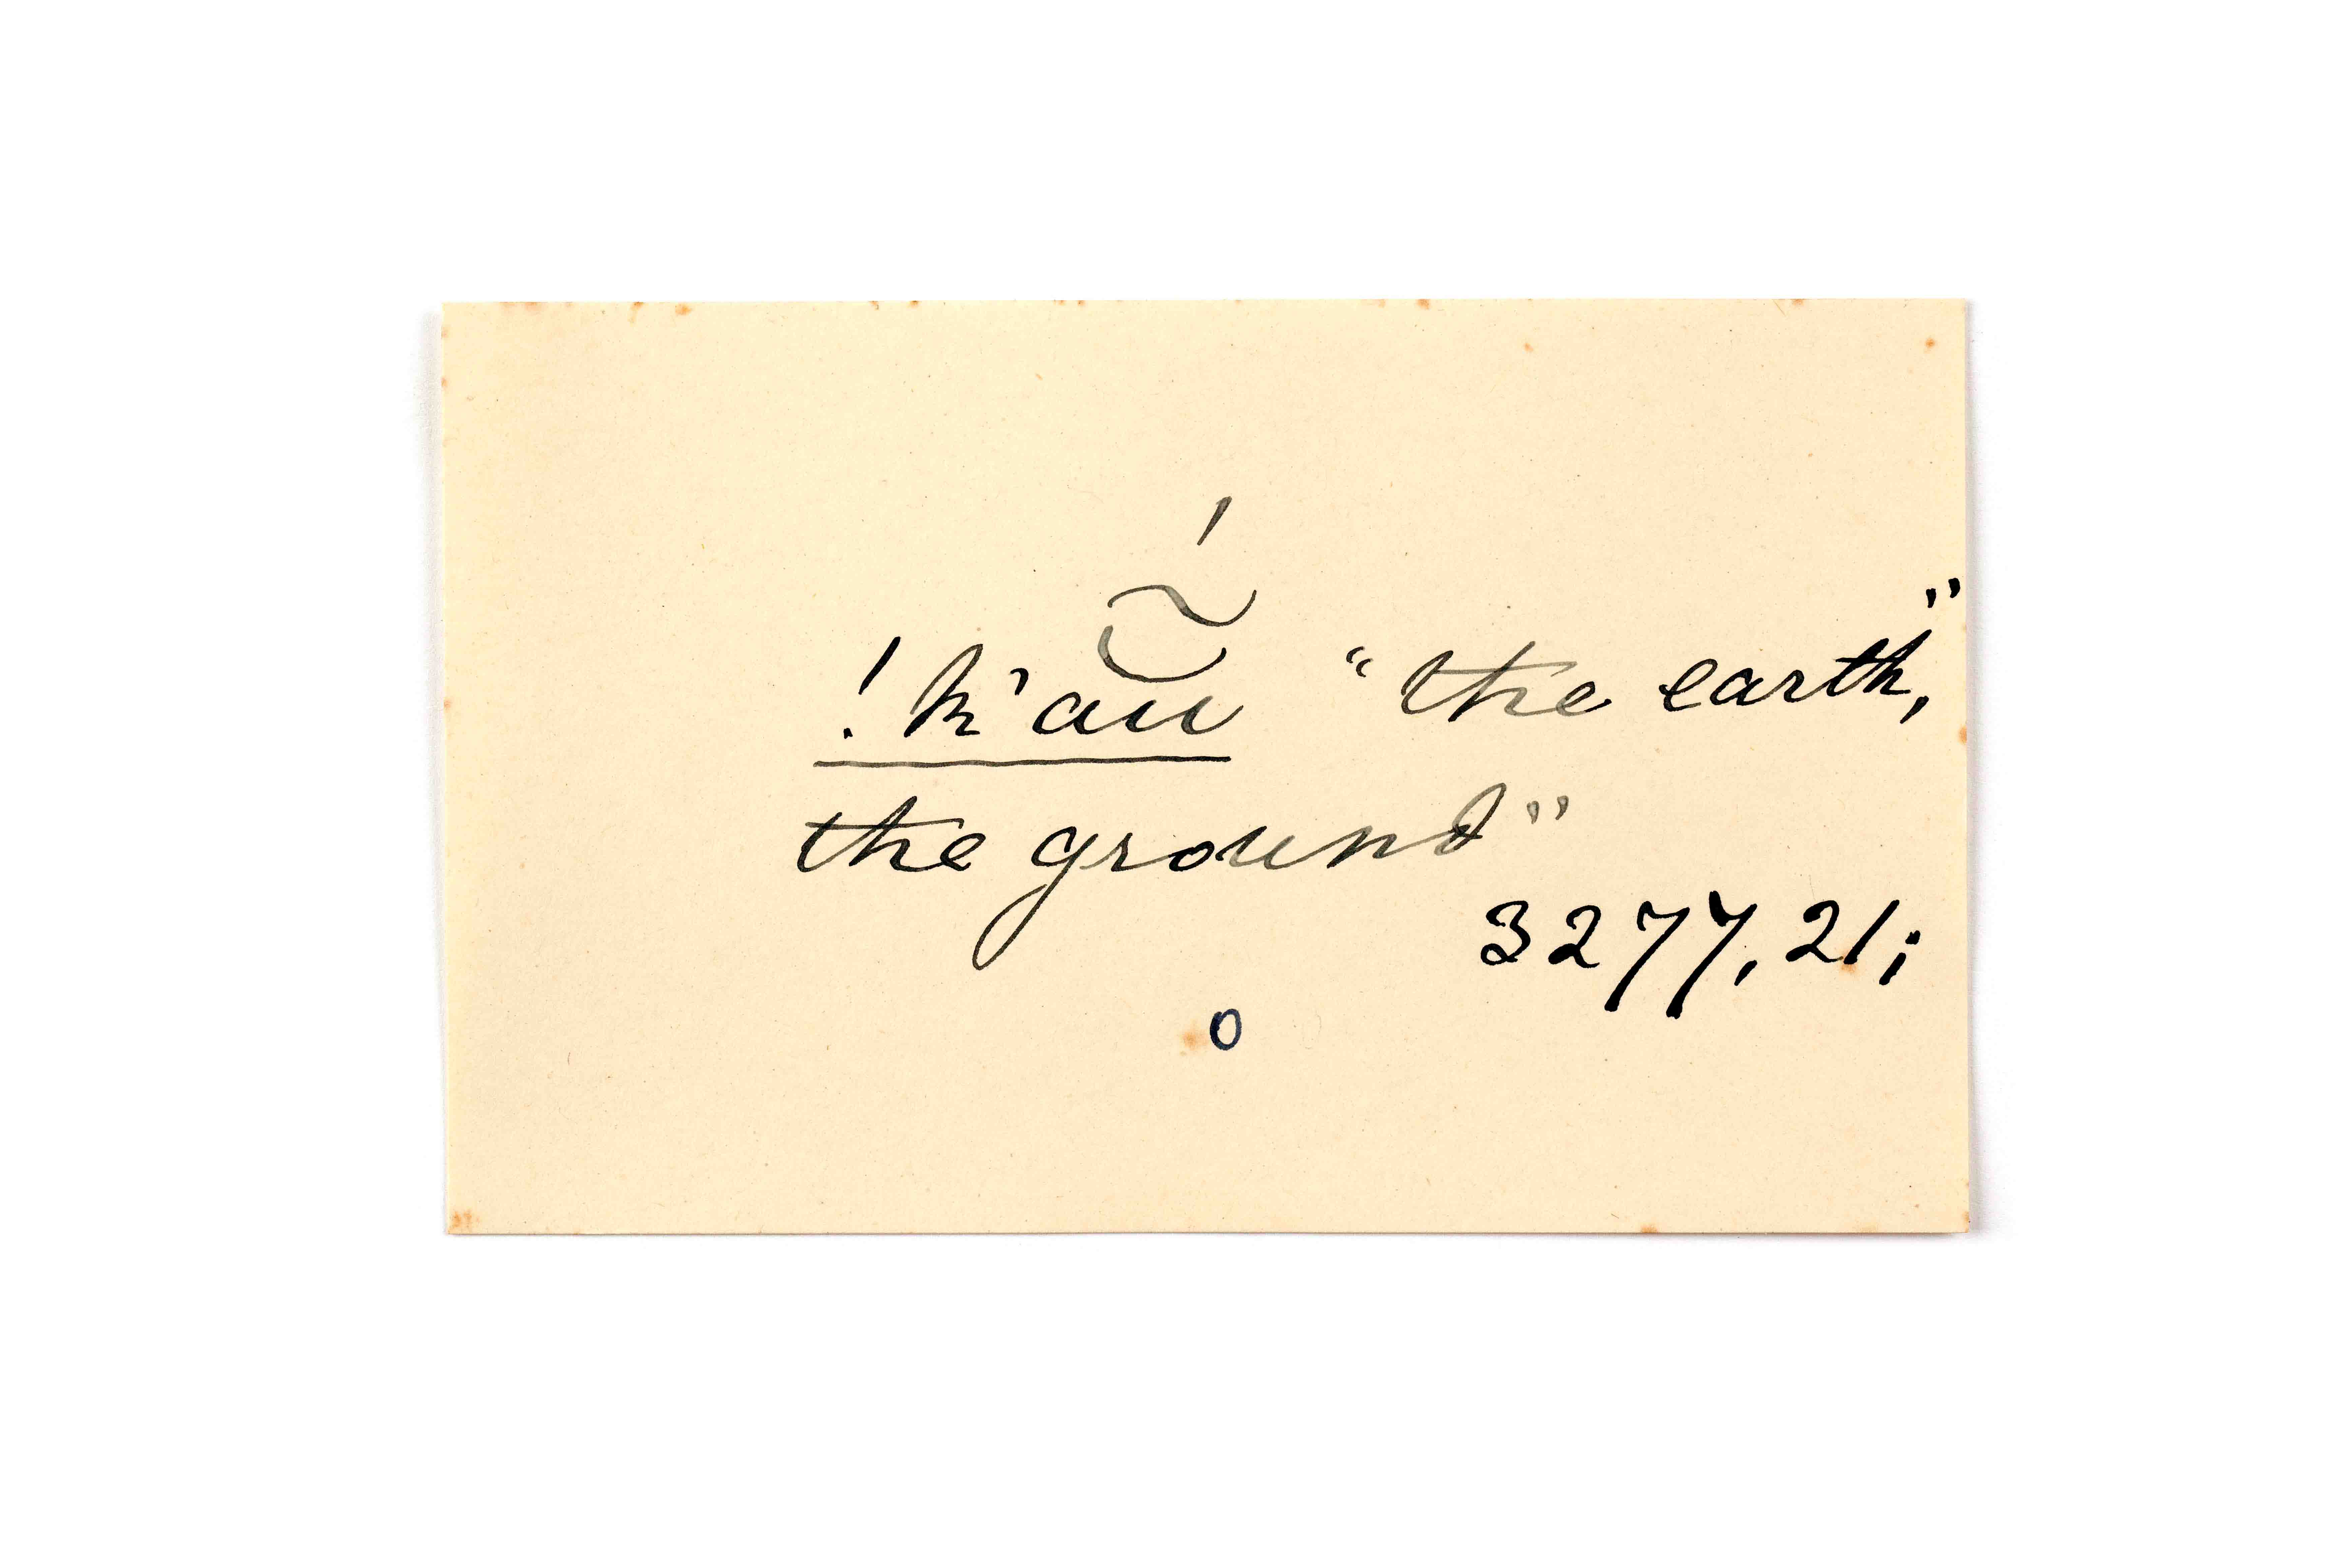 !k'aṹ̆ “the earth,”
the ground”
3277, 21;
o